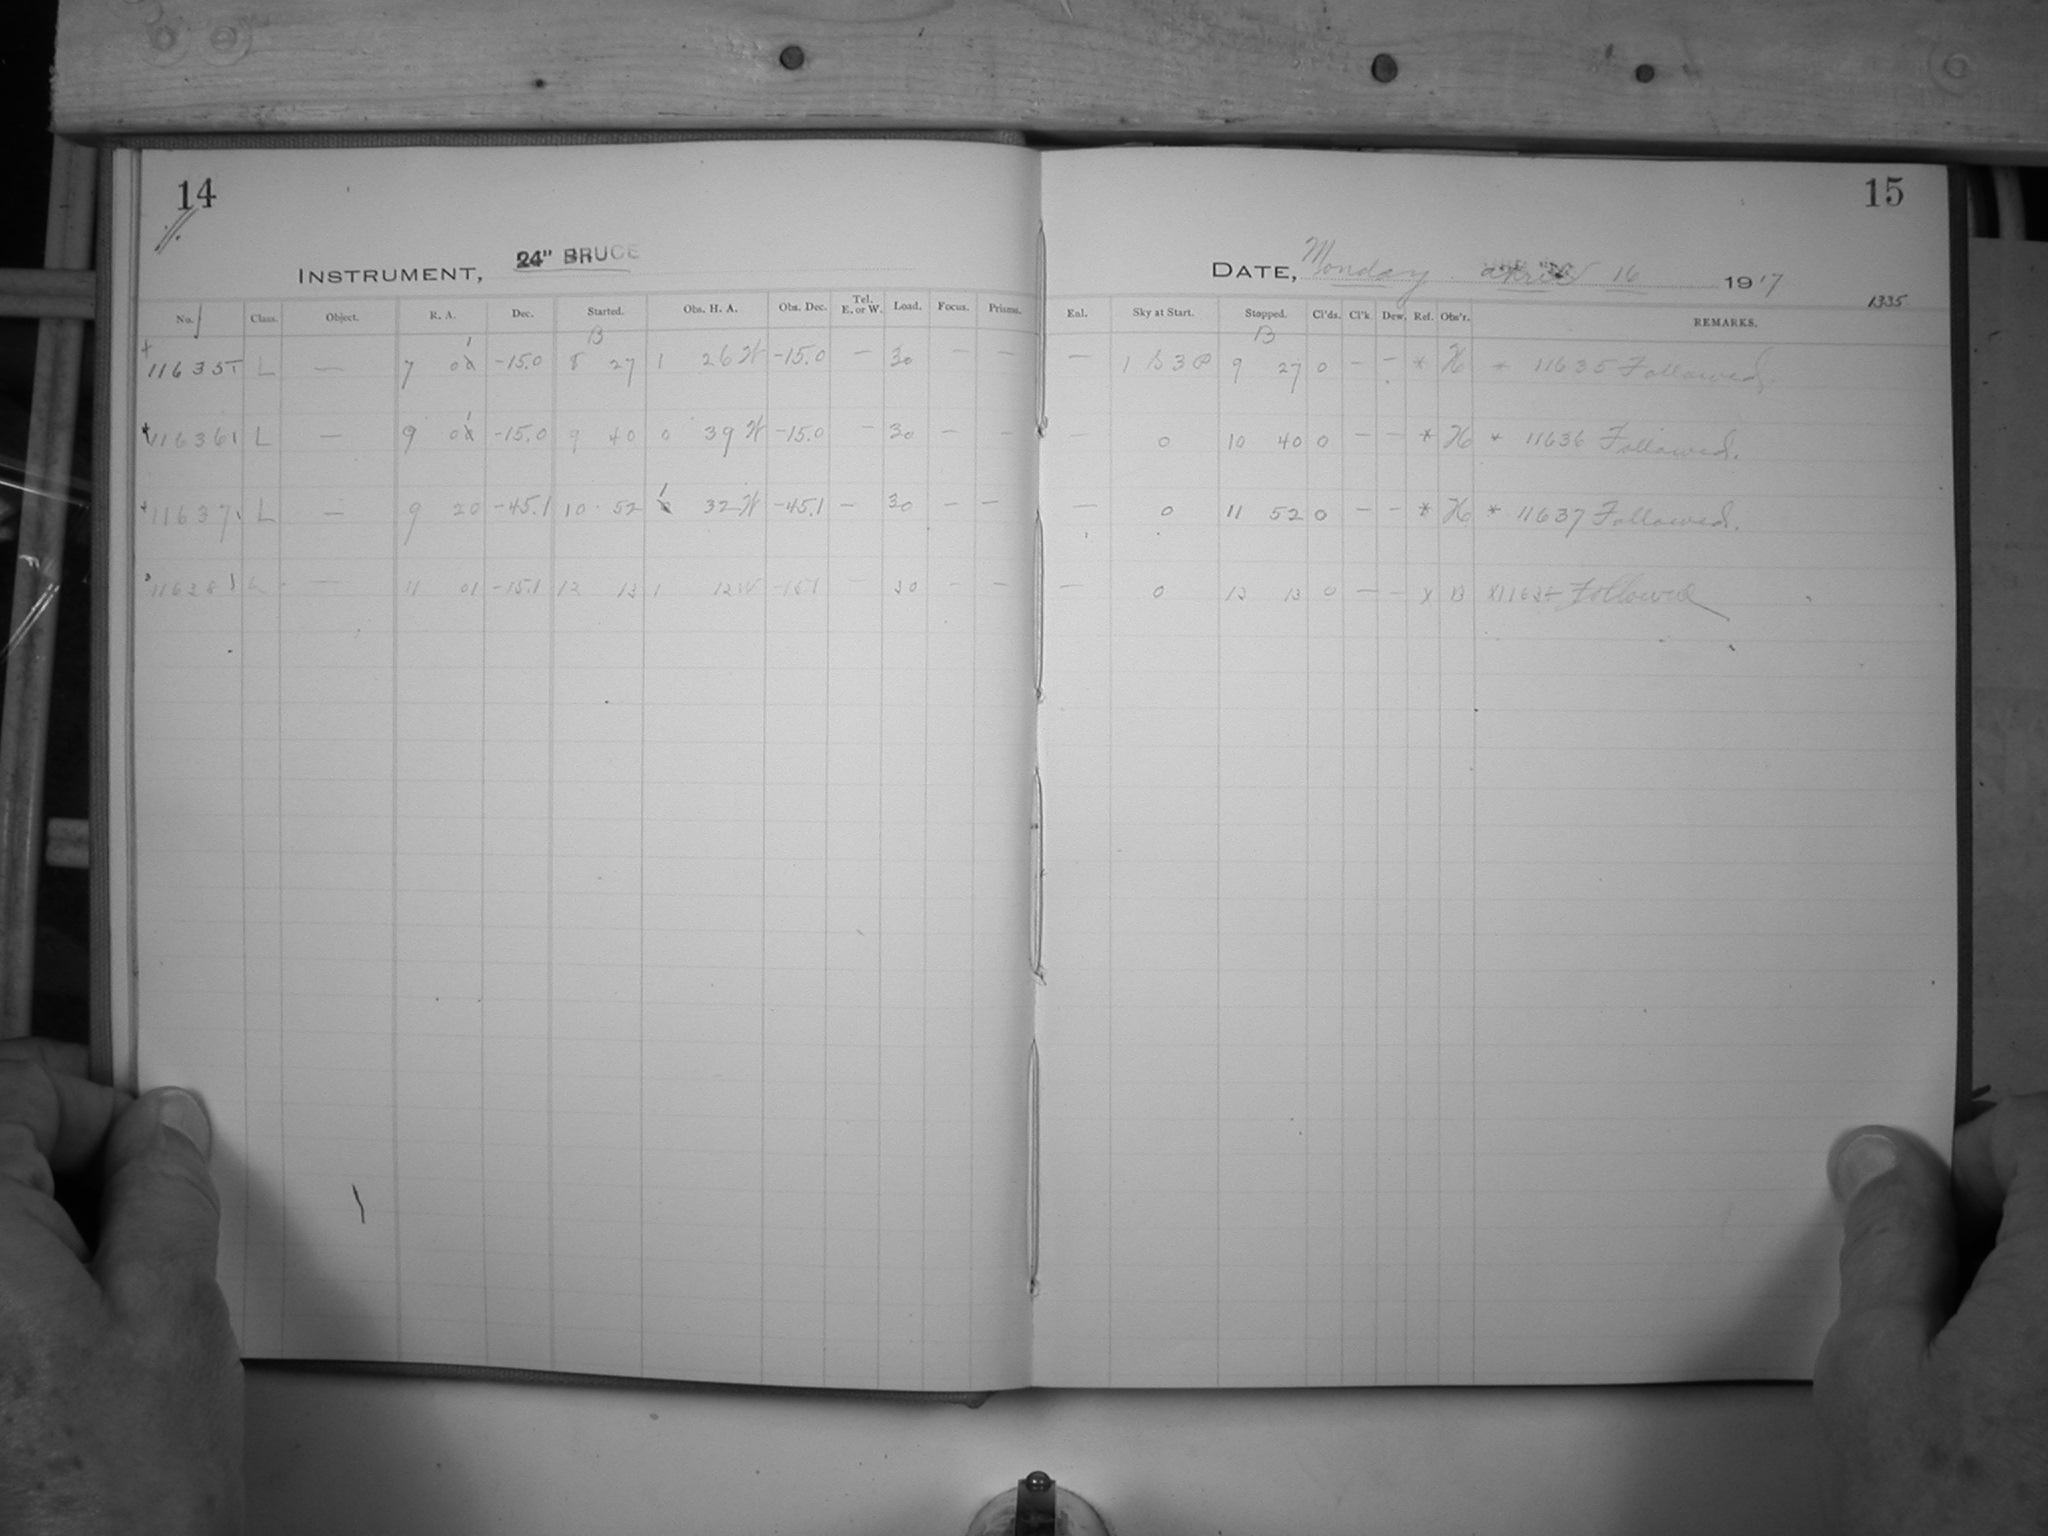 14
INSTRUMENT, 24" BRUCE
No. Class. Object. R. A. Dec. Started. Obs. H. A. Obs. Dec. Tel. E. or W. Load. Focus. Prisms.
B
11635 L — 7 01 -15.0 8 27 1 26 W -15.0 — 30 — —
11636 L — 9 01 -15.0 9 40 0 39 W -15.0 — 30 — —
11637 L — 9 20 -45.1 10 52 1 32 W -45.1 — 30 — —
11638 L — 11 01 -15.1 12 13 1 12 W -15.1 30 — —
15
DATE, Monday April 16 1917
1335
Enl. Sky at Start. Stopped. Cl'ds. Cl'k Dew. Ref. Obs'r. REMARKS.
B
— 1 S 3 P 9 27 0 — — * H * 11635 Followed.
— 0 10 40 0 — — * H * 11636 Followed.
— 0 11 52 0 — — * H * 11637 Followed.
— 0 13 13 0 — — x B x11638 Followed